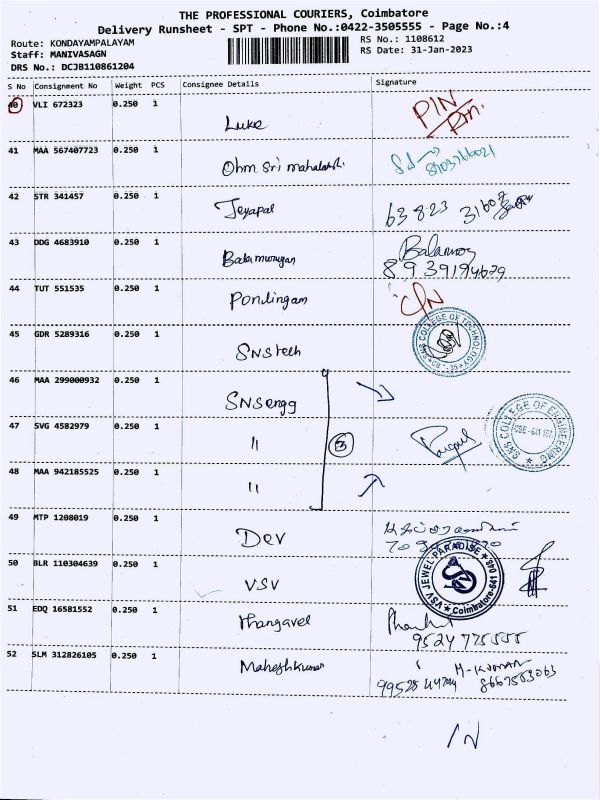 THE PROFESSIONAL COURIERS, Coimbatore
Delivery Runsheet - SPT - Phone No.:0422-3505555 - Page No.:4
Route: KONDAYAMPALAYAM
RS No.: 1108612
Staff: MANIVASAGN
RS Date: 31-Jan-2023
DRS No.: DCJB110861204
S No Consignment No Weight PCS Consignee Details Signature
40 VLI 672323 0.250 1 Luke PIN
41 MAA 567407723 0.250 1 Ohm Sri mahalakshmi
42 STR 341457 0.250 1 Jeyapal 63823
43 DDG 4683910 0.250 1 Balamurugan
8939194629
44 TUT 551535 0.250 1 Pondingam
45 GDR 5289316 0.250 1 SNS tech SNS COLLEGE OF TECHNOLOGY
46 MAA 299000932 0.250 1 SNS engg
47 SVG 4582979 0.250 1 " 3 SNS COLLEGE OF ENGINEERING
48 MAA 942185525 0.250 1 "
49 MTP 1208019 0.250 1 Dev
50 BLR 110304639 0.250 1 VSV VSV JEWEL PARADISE Coimbatore-641
51 EDQ 16581552 0.250 1 Thangavel
9524775555
52 SLM 312826105 0.250 1 Maheshkumar M-KUMAR